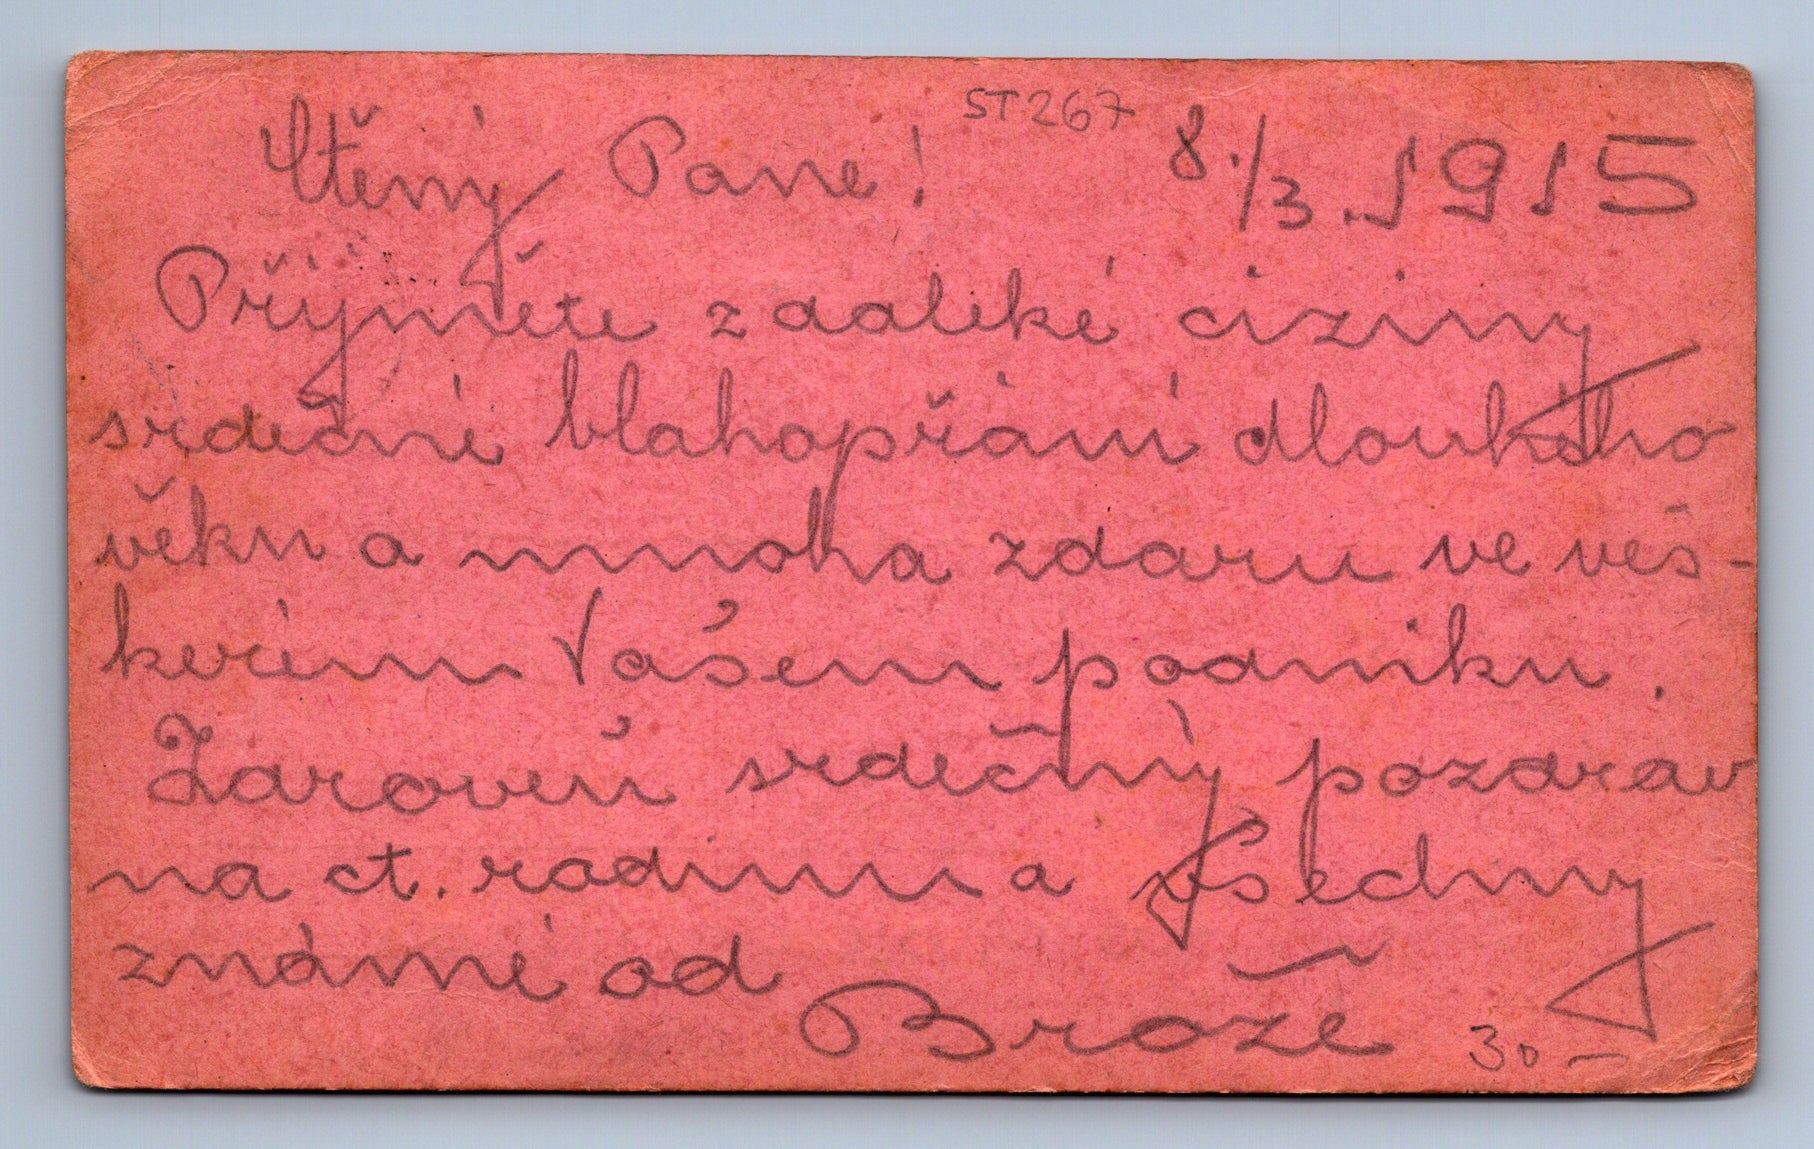 ST 267
Ctěný Pane! 8./3. 1915
Přijměte z daleké ciziny
srdečné blahopřání dlouhého
věku a mnoho zdaru ve veš-
kerém Vašem podniku.
Zároveň srdečný pozdrav
na ct. rodinu a všechny
známé od
Brože
30 —